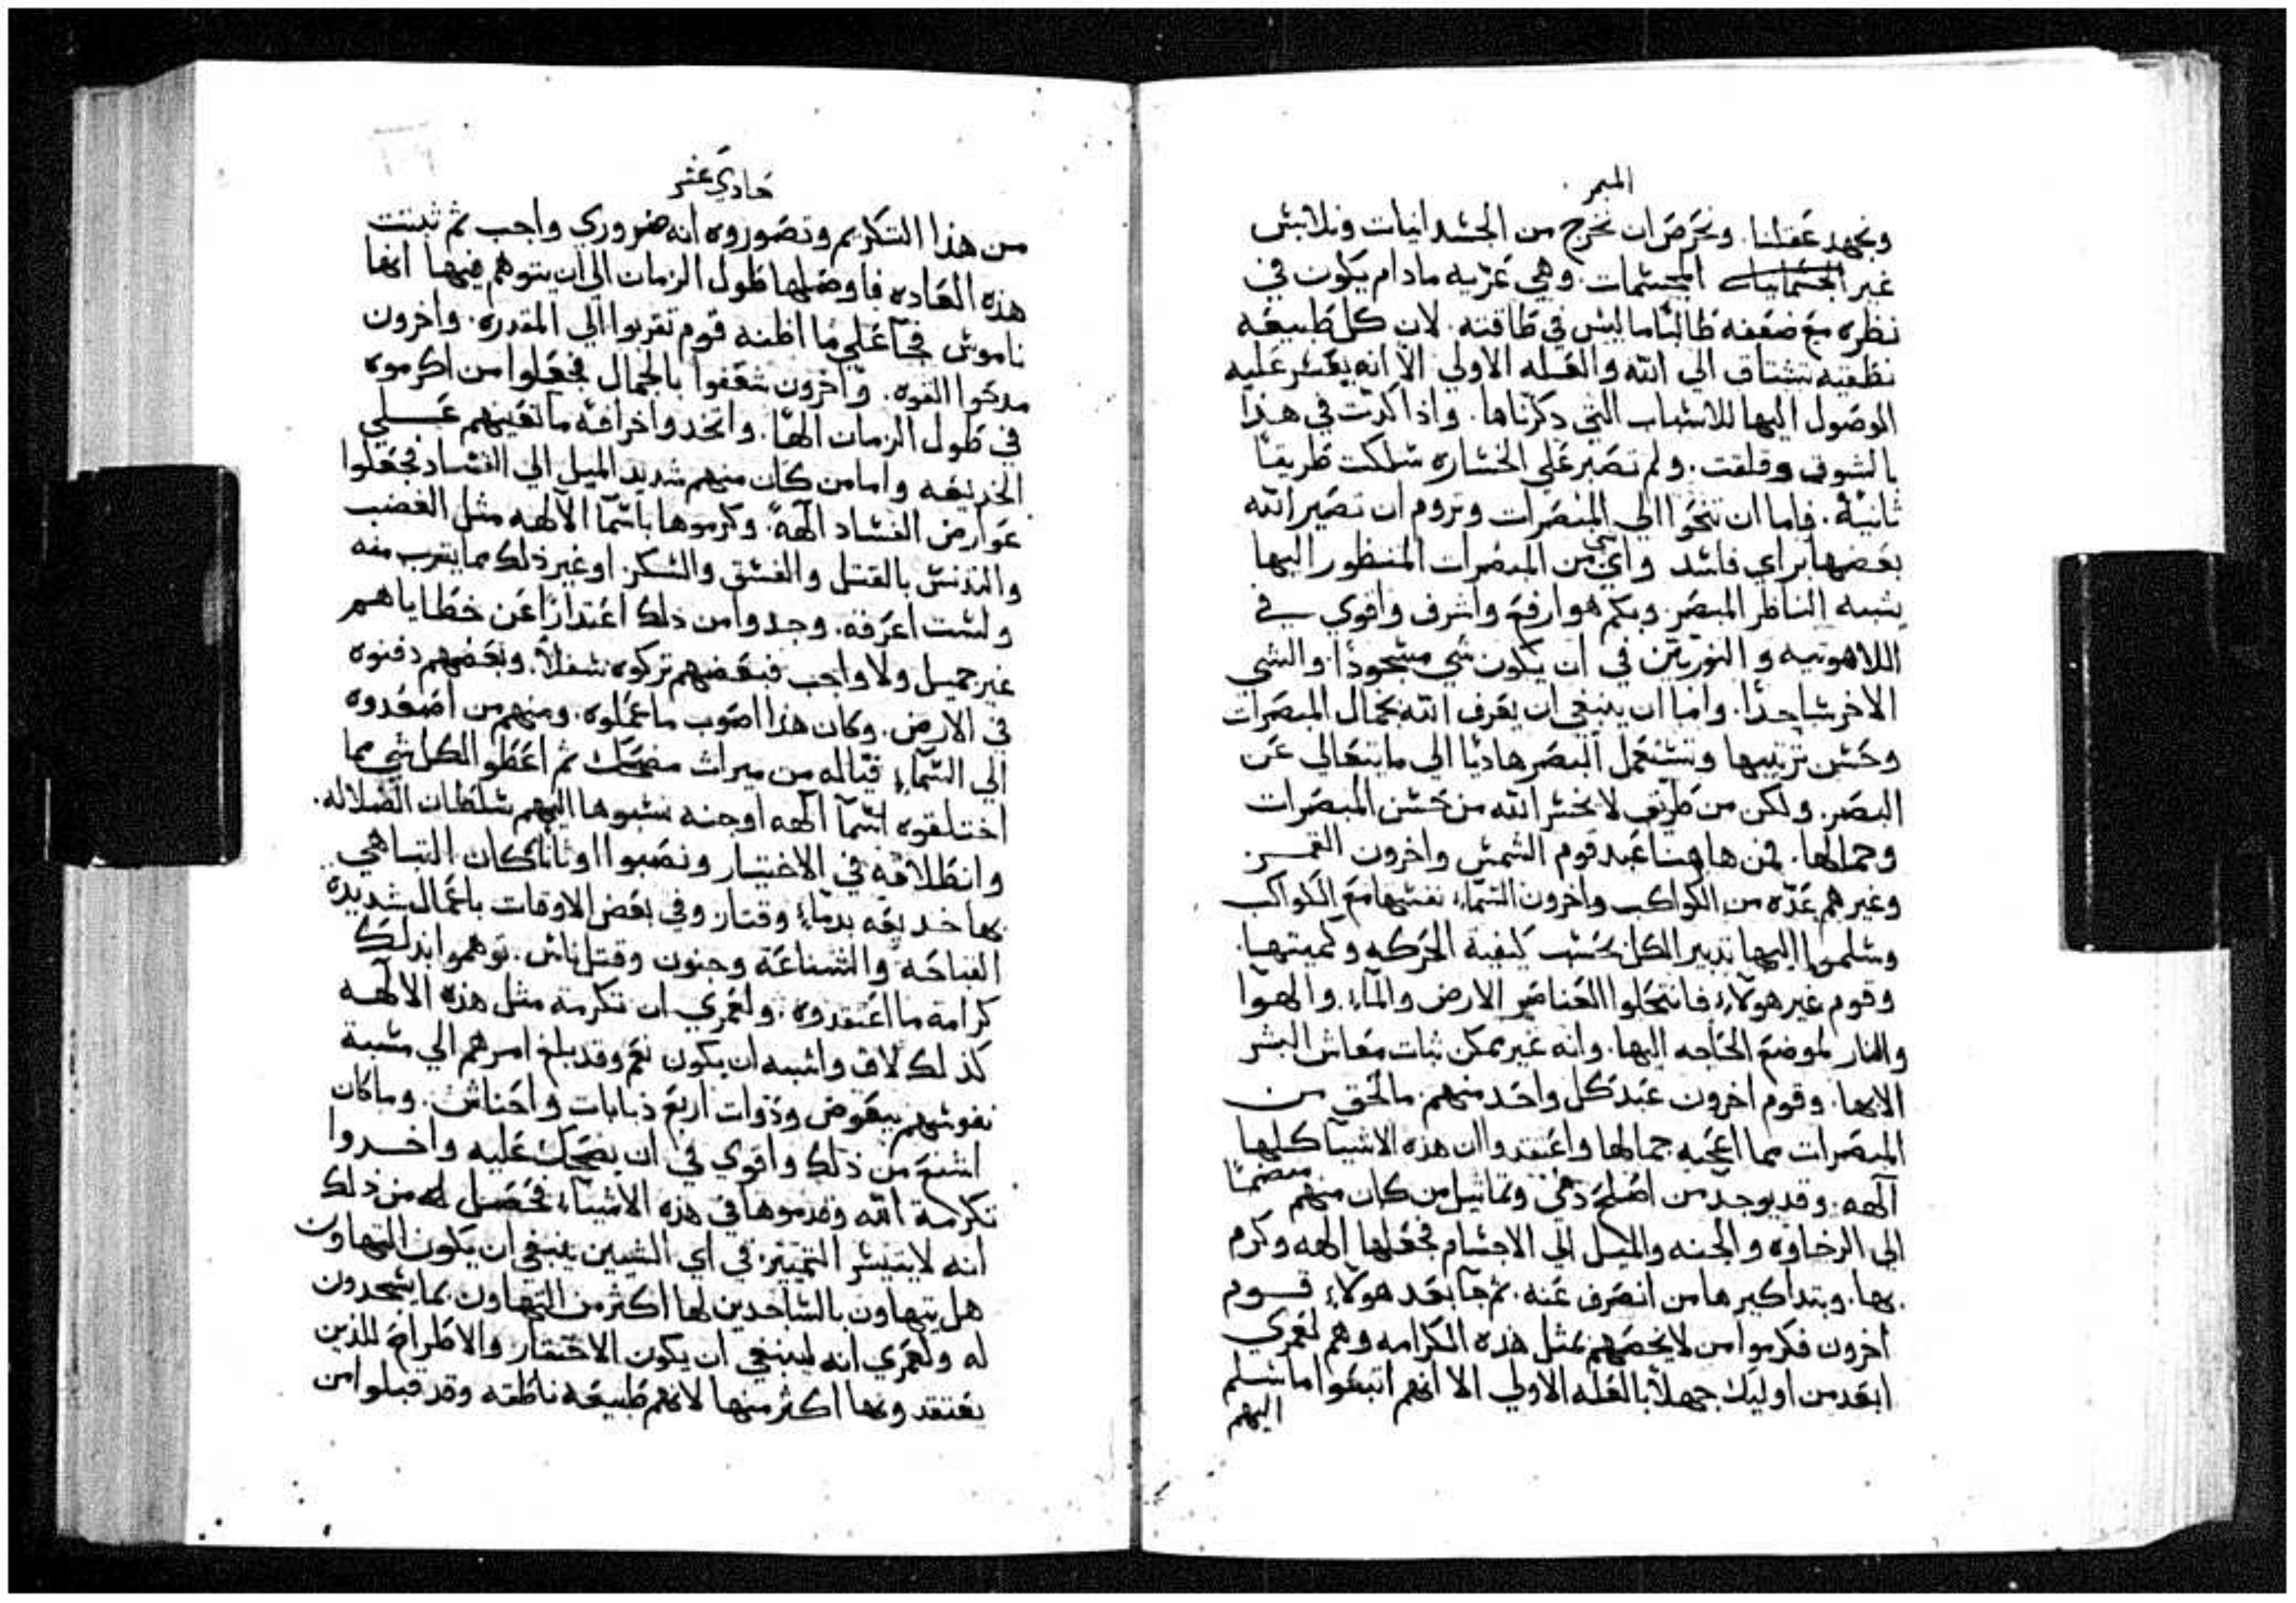 الميمر
ونجهد عقلنا. ونحرص ان نخرج من الجسدانيات ونلابس
غير الجسمانيات المجسمات. وهي عريه مادام يكون في
نظره مع ضعفه طالبًا ما ليس في طاقته. لان كل طبيعه
نطقيه تشتاق الي الله والعله الاولي الا انه يعسر عليه
الوصول اليها للاسباب التي دكرناها. واذا كدت في هذا
بالشوق وقلقت. ولم تصبر علي الخساره سلكت طريقًا
ثانية. فاما ان تنحوا الي المبصرات وتروم ان تصير الله
بعضها براي فاسد واي شي من المبصرات المنظور اليها
يشبه الناظر المبصر وبكم هو ارفع واشرف واقوي في
اللاهوتيه و النوريتين في ان يكون شي مسجودًا. والشي
الاخر ساجدًا. واما ان ينبغي ان يعرف الله بجمال المبصرات
وحسن ترتيبها وتستعمل البصر هاديًا الي ما يتعالي عن
البصر. ولكن من طريف لا نخسر الله من حسن المبصرات
وجمالها. فمن هاهنا عبد قوم الشمس واخرون القمر
وغيرهم عدّه من الكواكب واخرون السمآء نفسها مع الكواكب
وسلموا اليها تدبير الكل بحسب كيفية الحركه وكميتها.
وقوم غير هولآء فانتحلوا العناصر الارض والمآء والهوآ
والنار لموضع الحاجه اليها. وانه غير ممكن ثبات معاش البشر
الا بها. وقوم اخرون عبد كل واحد منهم. ما لحق من
المبصرات مما اعجبه جمالها واعتقدوا ان هذه الاشيآ كلها
آلهه. وقد يوجد من اصلح دمي وتماثيل من كان منهم منضمًا
الي الرخاوه و الجنه والميل الي الاجسام فجعلها الهه وكرم
بها. وبتداكيرها من انصرف عنه. ثم جآ بعد هولآء قوم
اخرون فكرموا من لا يخصهم بمثل هذه الكرامه وهم لعمري
ابعد من اوليك جهلاً بالعله الاولي الا انهم اتبعوا ما سلم
اليهم
حادي عشر
من هذا التكريم وتصوروه انه ضروري واجب ثم ثبتت
هذه العاده فاوصلها طول الزمان الي ان يتوهم فيها انها
ناموس فجآ علي ما اظنه قوم تقربوا الي المقدره. واخرون
مدحوا القوه. واخرون شغفوا بالجمال فجعلوا من اكرموه
في طول الزمان الهًا. واتخدوا خرافه ما تعينهم علي
الخديعه واما من كان منهم شديد الميل الي الفساد فجعلوا
عوارض الفساد آلهةً. وكرموها باسمآ الآلهه مثل الغضب
والتدنس بالقتل والفسق والسكر. او غير ذلك مما يقرب منه
ولست اعرفه. وجدوا من ذلك اعتدارًا عن خطاياهم
غير جميل ولا واجب فبعضهم تركوه سفلاً. وبعضهم دفنوه
في الارض. وكان هذا اصوب ما عملوه. ومنهم من اصعدوه
الي السمآء فياله من ميراث مضحك ثم اعطوا لكل شي مما
اختلقوه اسمآ آلهه او جنه نسبوها اليهم سلطان الضلاله.
وانطلاقه في الاختيار ونصبوا اوثانًا كان التباهي
بها خديعه بدمآء وقتار وفي بعض الاوقات باعمال شديدة
القباحه والشناعة وجنون وقتل ناس. توهموا بذلك
كرامة ما اعتقدوه. ولعمري ان تكرمة مثل هذه الآلهه
كذلك لاق واشبه ان يكون نعم وقد بلغ امرهم الي مسبة
نفوسهم ببعوض وذوات اربع ذبابات واحناش. وما كان
اشنع من ذلك واقوي في ان يضحك عليه واخدوا
تكرمة الله وقدموها في هذه الاشيآء فحصل له من ذلك
انه لا يتيسر التمييز في اي الشيين ينبغي ان يكون التهاون
هل يتهاون بالساجدين لها اكثر من التهاون بما يسجدون
له ولعمري انه لينبغي ان يكون الاحتقار والاطراح للذين
يعتقدونها اكثر منها لانهم طبيعه ناطقه وقد قبلوا من